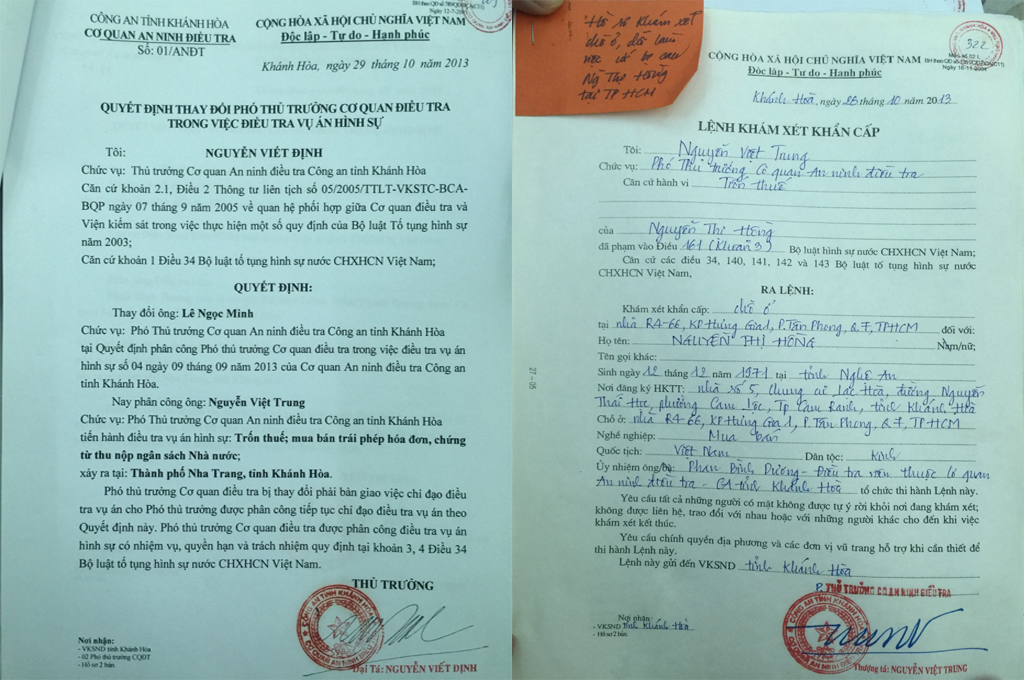 CÔNG AN TỈNH KHÁNH HÒA
CƠ QUAN AN NINH ĐIỀU TRA
Số: 01/ANĐT
CỘNG HÒA XÃ HỘI CHỦ NGHĨA VIỆT NAM
Độc lập - Tự do - Hạnh phúc
Khánh Hòa, ngày 29 tháng 10 năm 2013
QUYẾT ĐỊNH THAY ĐỔI PHÓ THỦ TRƯỞNG CƠ QUAN ĐIỀU TRA
TRONG VIỆC ĐIỀU TRA VỤ ÁN HÌNH SỰ
Tôi: NGUYỄN VIẾT ĐỊNH
Chức vụ: Thủ trưởng Cơ quan An ninh điều tra Công an tỉnh Khánh Hòa
Căn cứ khoản 2.1, Điều 2 Thông tư liên tịch số 05/2005/TTLT-VKSTC-BCA-
BQP ngày 07 tháng 9 năm 2005 về quan hệ phối hợp giữa Cơ quan điều tra và
Viện kiểm sát trong việc thực hiện một số quy định của Bộ luật Tố tụng hình sự
năm 2003;
Căn cứ khoản 1 Điều 34 Bộ luật tố tụng hình sự nước CHXHCN Việt Nam;
QUYẾT ĐỊNH:
Thay đổi ông: Lê Ngọc Minh
Chức vụ: Phó Thủ trưởng Cơ quan An ninh điều tra Công an tỉnh Khánh Hòa
tại Quyết định phân công Phó thủ trưởng Cơ quan điều tra trong việc điều tra vụ án
hình sự số 04 ngày 09 tháng 09 năm 2013 của Cơ quan An ninh điều tra Công an
tỉnh Khánh Hòa.
Nay phân công ông: Nguyễn Việt Trung
Chức vụ: Phó Thủ trưởng Cơ quan An ninh điều tra Công an tỉnh Khánh Hòa
tiến hành điều tra vụ án hình sự: Trốn thuế; mua bán trái phép hóa đơn, chứng
từ thu nộp ngân sách Nhà nước;
xảy ra tại: Thành phố Nha Trang, tỉnh Khánh Hòa.
Phó thủ trưởng Cơ quan điều tra bị thay đổi phải bàn giao việc chỉ đạo điều
tra vụ án cho Phó thủ trưởng được phân công tiếp tục chỉ đạo điều tra vụ án theo
Quyết định này. Phó thủ trưởng Cơ quan điều tra được phân công điều tra vụ án
hình sự có nhiệm vụ, quyền hạn và trách nhiệm quy định tại khoản 3, 4 Điều 34
Bộ luật tố tụng hình sự nước CHXHCN Việt Nam.
THỦ TRƯỞNG
Nơi nhận:
- VKSND tỉnh Khánh Hòa
- 02 Phó thủ trưởng CQĐT
- Hồ sơ 2 bản.
Đại Tá: NGUYỄN VIẾT ĐỊNH
Hồ sơ Khám xét
chỗ ở,
Ng Thị Hồng
tại TP HCM
322
CỘNG HÒA XÃ HỘI CHỦ NGHĨA VIỆT NAM
Độc lập - Tự do - Hạnh phúc
Khánh Hoà, ngày 25 tháng 10 năm 2013
LỆNH KHÁM XÉT KHẨN CẤP
Tôi: Nguyễn Việt Trung
Chức vụ: Phó Thủ trưởng Cơ quan An ninh điều tra
Căn cứ hành vi Trốn thuế
của Nguyễn Thị Hồng
đã phạm vào Điều 161 (Khoản 3) Bộ luật hình sự nước CHXHCN Việt Nam;
Căn cứ các điều 34, 140, 141, 142 và 143 Bộ luật tố tụng hình sự nước
CHXHCN Việt Nam,
RA LỆNH:
Khám xét khẩn cấp: chỗ ở
tại nhà R4-66, KP Hưng Gia 1, P. Tân Phong, Q.7, TPHCM đối với:
Họ tên: NGUYỄN THỊ HỒNG Nam/nữ;
Tên gọi khác:
Sinh ngày 12 tháng 12 năm 1971 tại tỉnh Nghệ An
Nơi đăng ký HKTT: nhà số 5, chung cư Lạc Hòa, đường Nguyễn
Thái Học, phường Cam Lộc, Tp Cam Ranh, tỉnh Khánh Hòa
Chỗ ở: nhà R4-66, KP Hưng Gia 1, P. Tân Phong, Q.7, TPHCM
Nghề nghiệp: Mua bán
Quốc tịch: Việt Nam Dân tộc: Kinh
Ủy nhiệm ông/bà: Phan Đình Dương - Điều tra viên thuộc Cơ quan
An ninh điều tra - CA tỉnh Khánh Hoà tổ chức thi hành Lệnh này.
Yêu cầu tất cả những người có mặt không được tự ý rời khỏi nơi đang khám xét;
không được liên hệ, trao đổi với nhau hoặc với những người khác cho đến khi việc
khám xét kết thúc.
Yêu cầu chính quyền địa phương và các đơn vị vũ trang hỗ trợ khi cần thiết để
thi hành Lệnh này.
Lệnh này gửi đến VKSND tỉnh Khánh Hòa
P. THỦ TRƯỞNG CQ AN NINH ĐIỀU TRA
Nơi nhận:
- VKSND tỉnh Khánh Hoà
- Hồ sơ 2 bản.
Thượng tá: NGUYỄN VIỆT TRUNG